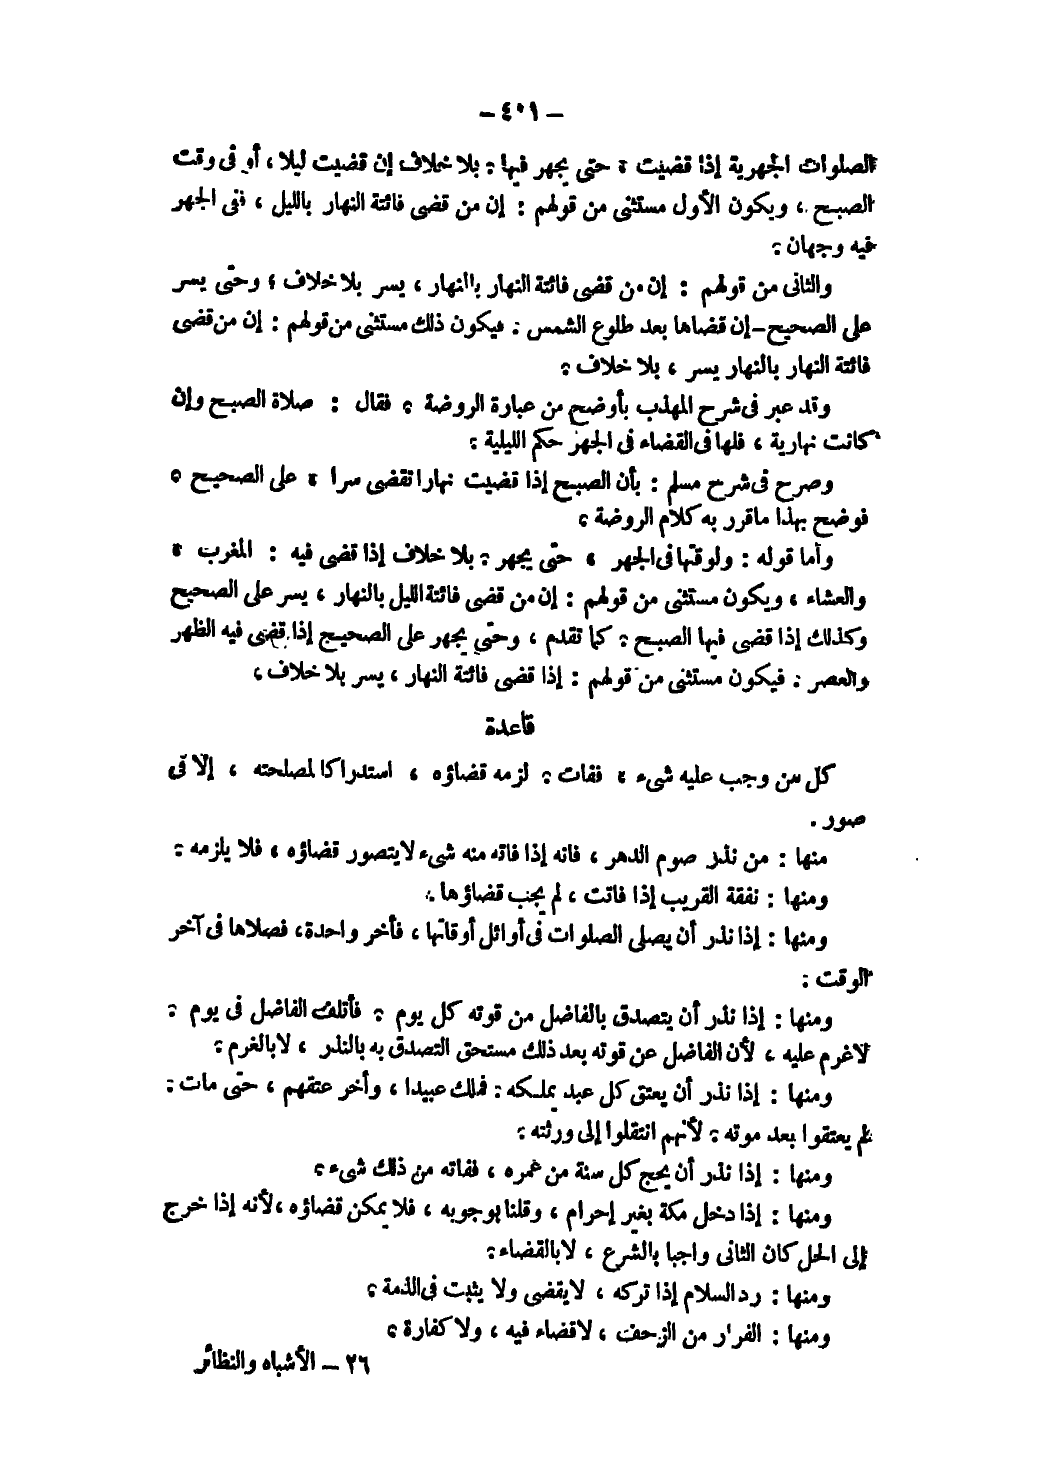 — ٤٠١ —
الصلوات الجهرية إذا قضيت ، حتى يجهر فيها ، بلا خلاف إن قضيت ليلا ، أو فى وقت
الصبح ، ويكون الأول مستثنى من قولهم : إن من قضى فائتة النهار بالليل ، ففى الجهر
فيه وجهان .
والثانى من قولهم : إن من قضى فائتة النهار بالنهار ، يسر بلا خلاف ، وحتى يسر
على الصحيح – إن قضاها بعد طلوع الشمس . فيكون ذلك مستثنى من قولهم : إن من قضى
فائتة النهار بالنهار يسر ، بلا خلاف .
وقد عبر فى شرح المهذب بأوضح من عبارة الروضة ، فقال : صلاة الصبح وإن
كانت نهارية ، فلها فى القضاء فى الجهر حكم الليلية .
وصرح فى شرح مسلم : بأن الصبح إذا قضيت نهارا تقضى سرا ، على الصحيح .
فوضح بهذا ماقرر به كلام الروضة .
وأما قوله : ولوقتها فى الجهر ، حتى يجهر . بلا خلاف إذا قضى فيه : المغرب ،
والعشاء ، ويكون مستثنى من قولهم : إن من قضى فائتة الليل بالنهار ، يسر على الصحيح
وكذلك إذا قضى فيها الصبح . كما تقدم ، وحتى يجهر على الصحيح إذا قضى فيه الظهر
والعصر . فيكون مستثنى من قولهم : إذا قضى فائتة النهار ، يسر بلا خلاف .
قاعدة
كل من وجب عليه شىء ، ففات . لزمه قضاؤه ، استدراكا لمصلحته ، إلا فى
صور .
منها : من نذر صوم الدهر ، فانه إذا فاته منه شىء لايتصور قضاؤه ، فلا يلزمه .
ومنها : نفقة القريب إذا فاتت ، لم يجب قضاؤها .
ومنها : إذا نذر أن يصلى الصلوات فى أوائل أوقاتها ، فأخر واحدة ، فصلاها فى آخر
الوقت :
ومنها : إذا نذر أن يتصدق بالفاضل من قوته كل يوم . فأتلف الفاضل فى يوم .
لاغرم عليه ، لأن الفاضل عن قوته بعد ذلك مستحق التصدق به بالنذر ، لابالغرم .
ومنها : إذا نذر أن يعتق كل عبد يملكه . فملك عبيدا ، وأخر عتقهم ، حتى مات .
لم يعتقوا بعد موته . لأنهم انتقلوا إلى ورثته .
ومنها : إذا نذر أن يحج كل سنة من عمره ، ففاته من ذلك شىء .
ومنها : إذا دخل مكة بغير إحرام ، وقلنا بوجوبه ، فلا يمكن قضاؤه ، لأنه إذا خرج
إلى الحل كان الثانى واجبا بالشرع ، لابالقضاء .
ومنها : رد السلام إذا تركه ، لايقضى ولا يثبت فى الذمة .
ومنها : الفرار من الزحف ، لاقضاء فيه ، ولا كفارة .
٢٦ – الأشباه والنظائر